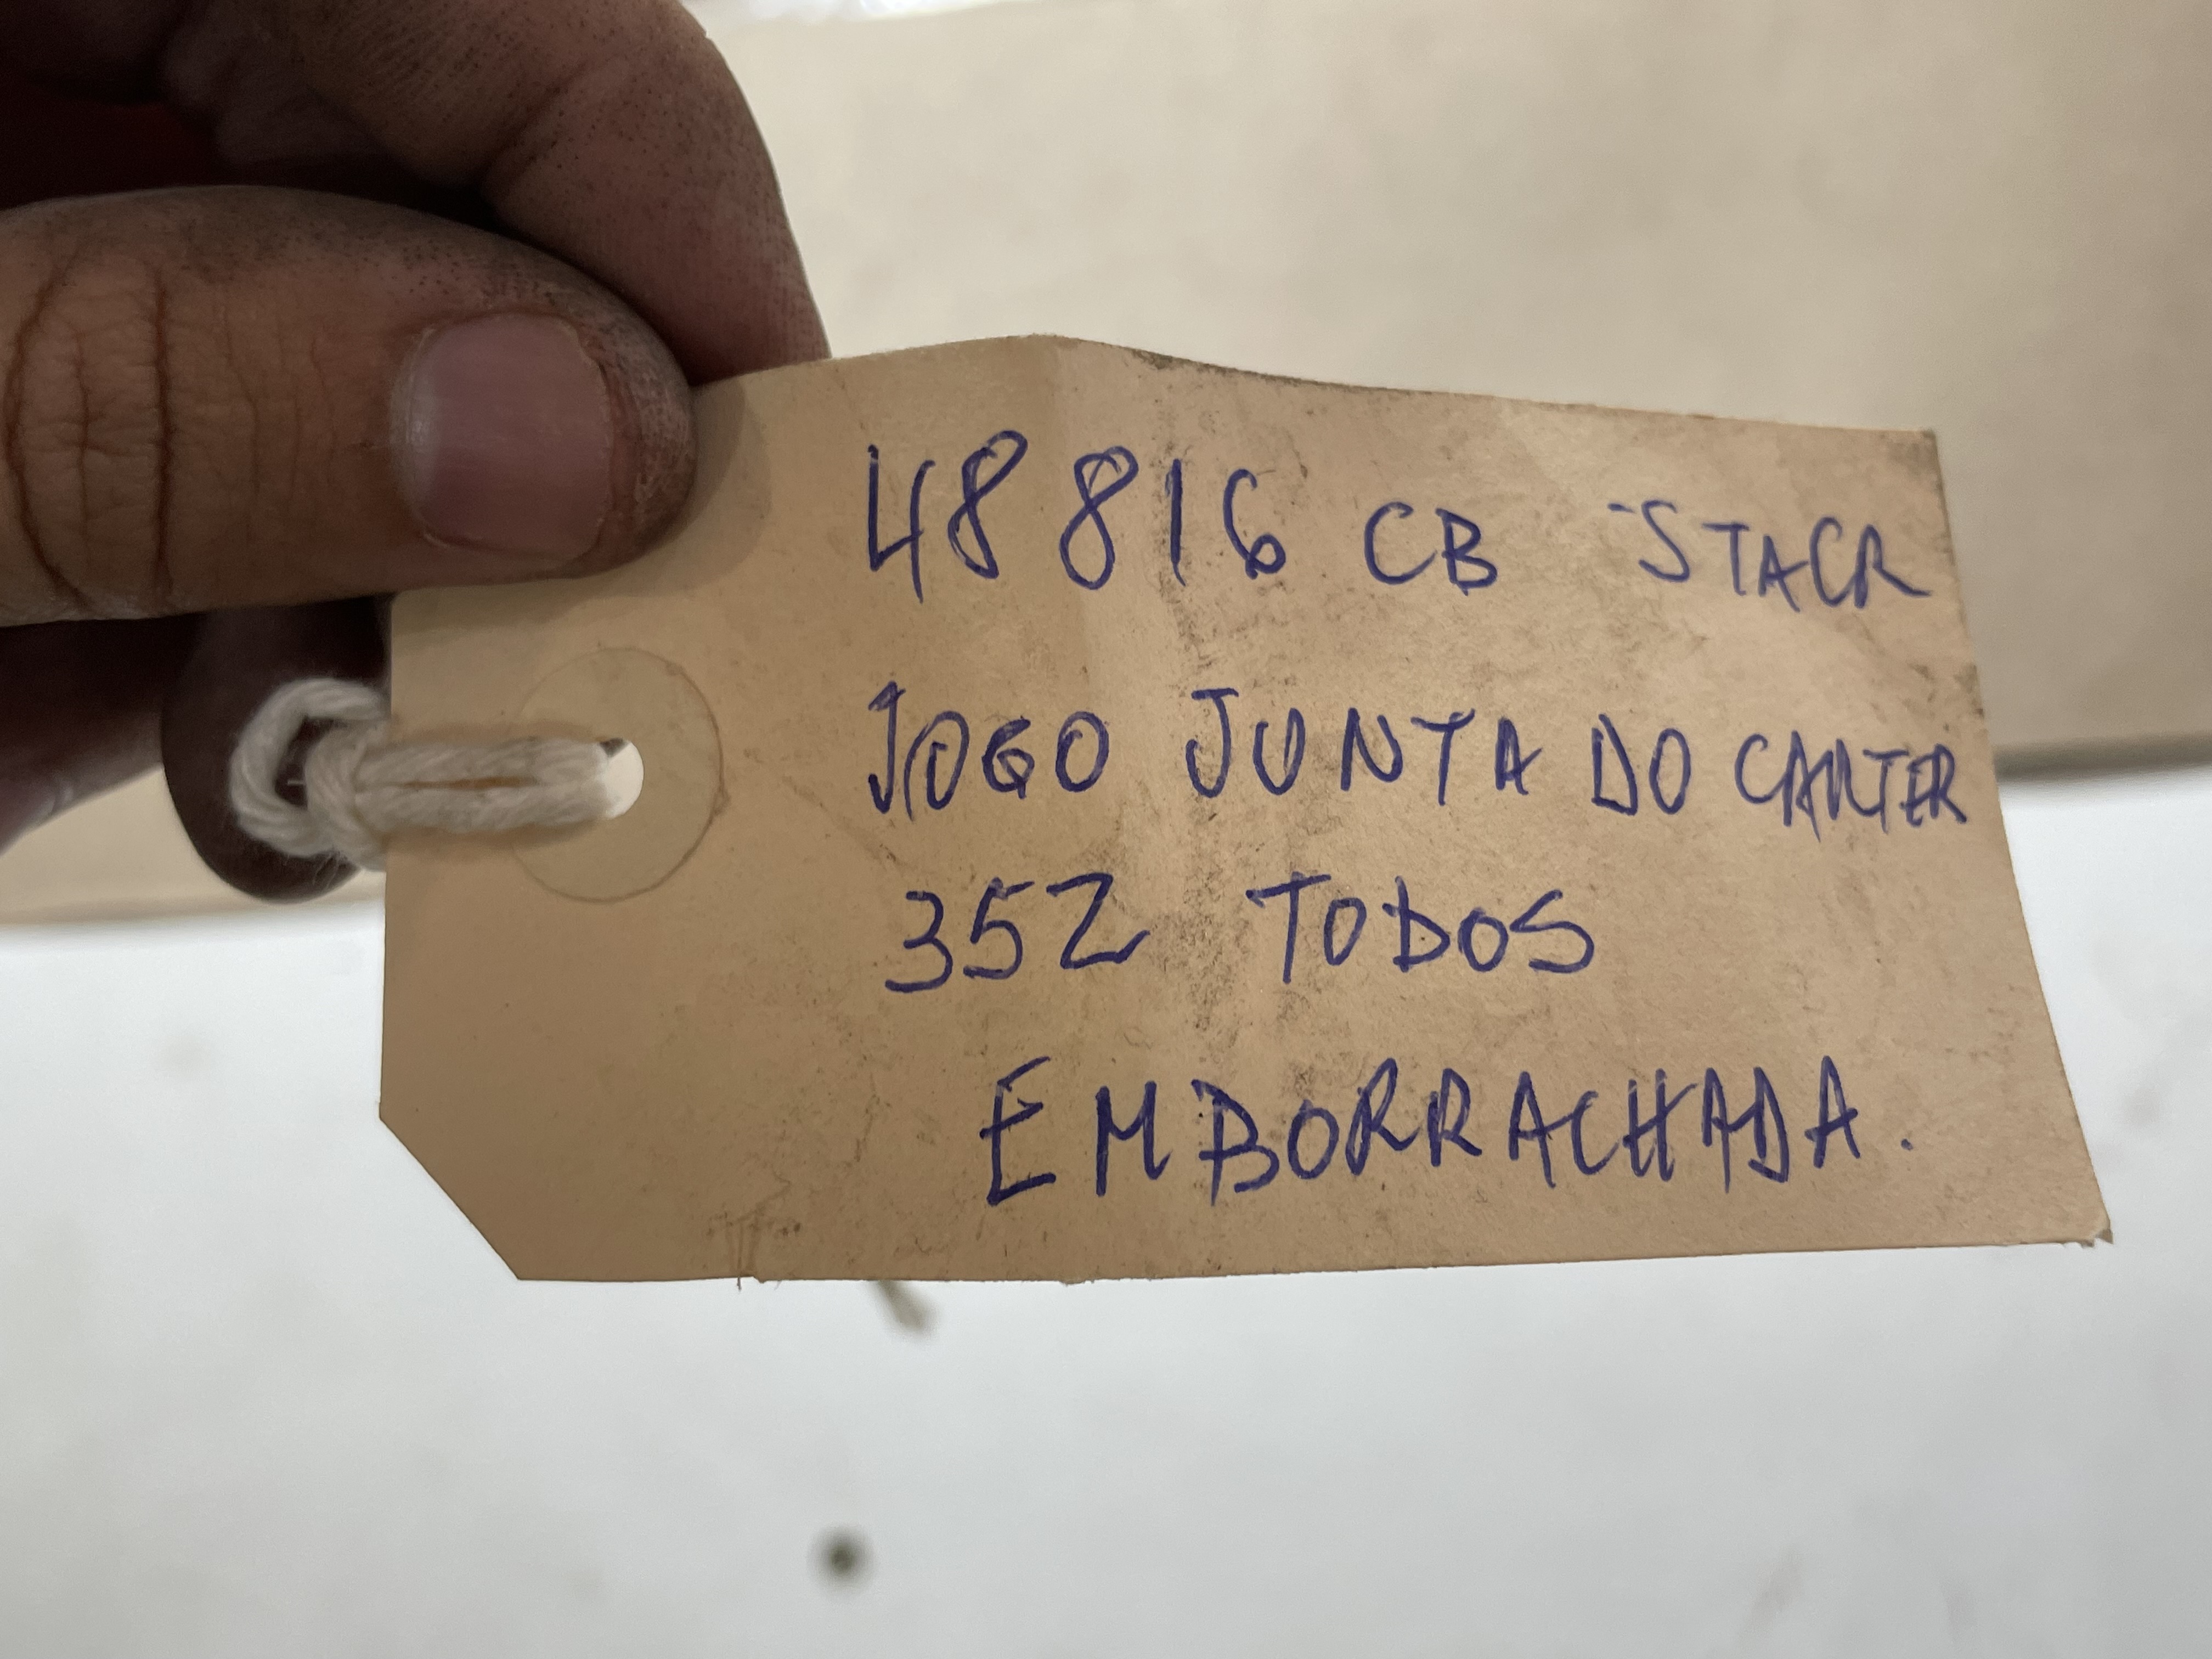 48816 CB - STACR
JOGO JUNTA DO CARTER
352 TODOS
EMBORRACHADA.